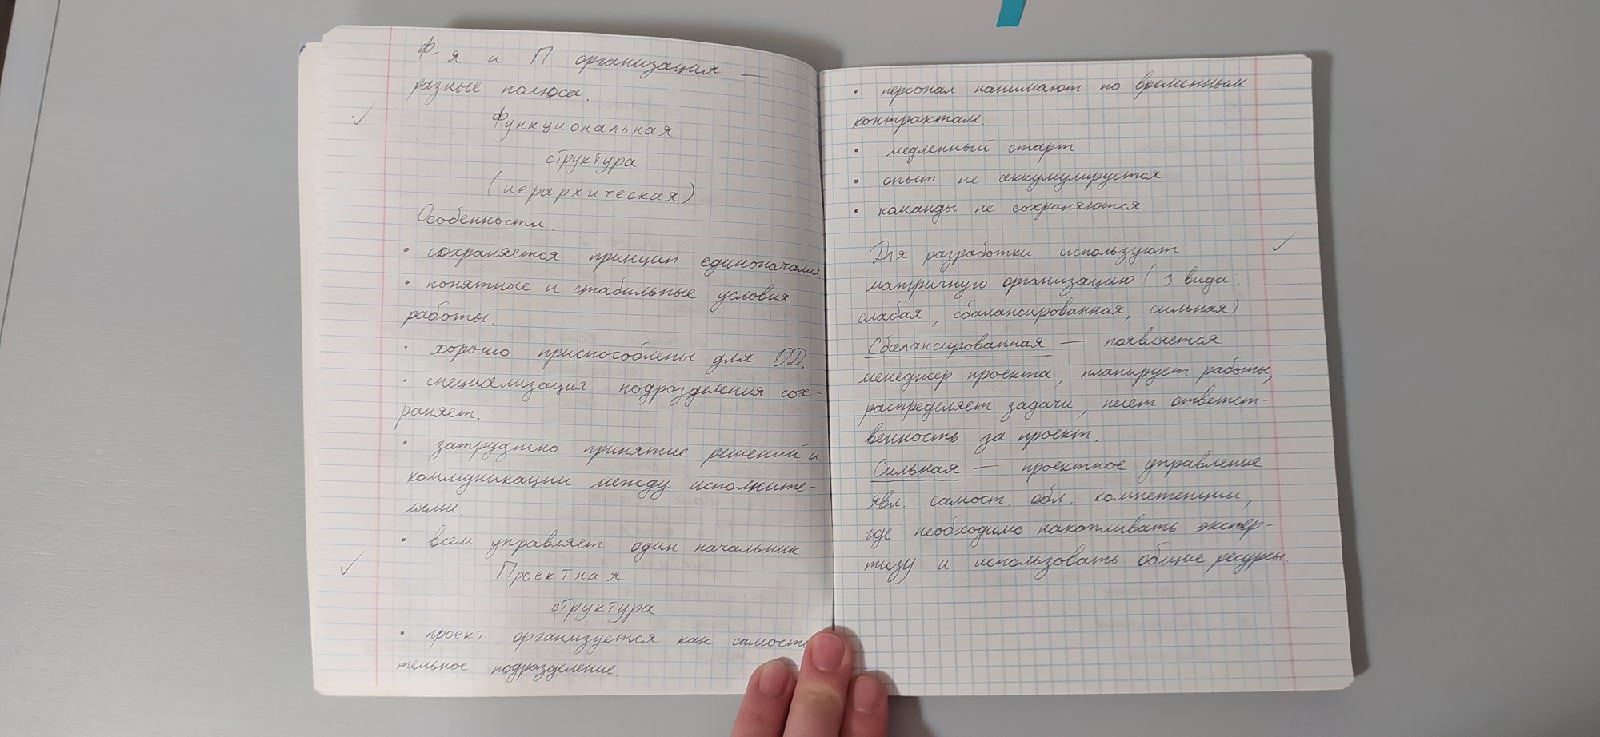 Ф-я и П организация —
разные полюса.
Функциональная
структура
(иерархическая)
Особенности:
• сохраняется принцип единоначалия
• понятные и стабильные условия
работы.
• хорошо приспособлены для ОД.
• специализация подразделения сох-
раняет.
• затруднено принятие решений и
коммуникации между исполните-
лями.
• всем управляет один начальник
Проектная
структура
• проект организуется как самосто
тельное подразделение.
• персонал нанимают по временным
контрактам.
• медленный старт
• опыт не аккумулируется
• команды не сохраняются
Для разработки используют
матричную организацию (3 вида:
слабая, сбалансированная, сильная)
Сбалансированная — появляется
менеджер проекта, планирует работы,
распределяет задачи, несет ответст-
венность за проект.
Сильная — проектное управление
явл. самост. обл. компетенции,
где необходимо накапливать экспер-
тизу и использовать общие ресурсы.